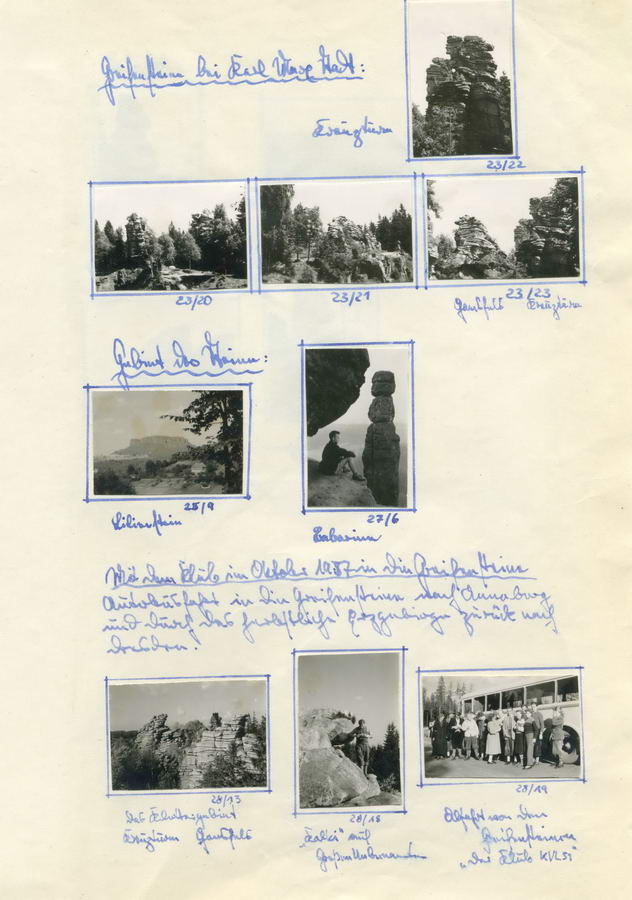 Greifensteine bei Karl Marx Stadt:
Kreuzturm
23/22
23/20
23/21
23/23
Gansfels Kreuzturm
Gebiet des Steine:
25/9
Lilienstein
27/6
Barbarine
Mit dem Klub im Oktober 1957 in die Greifensteine
Autobusfahrt in die Greifensteine nach Annaberg
und durch das herbstliche Erzgebirge zurück nach
Dresden.
28/13
Das Klettergebiet
Kreuzturm Gansfels
28/18
auf
28/19
Abfahrt von den
Greifensteinen
"Der Klub KVL51"